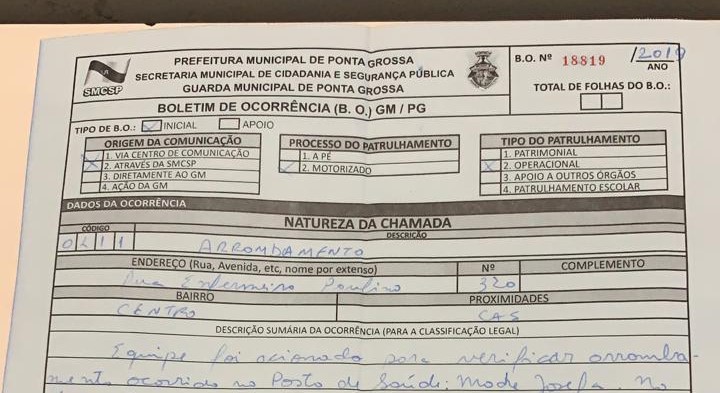 PREFEITURA MUNICIPAL DE PONTA GROSSA
SECRETARIA MUNICIPAL DE CIDADANIA E SEGURANÇA PÚBLICA
GUARDA MUNICIPAL DE PONTA GROSSA
SMCSP
BOLETIM DE OCORRÊNCIA (B. O.) GM / PG
B.O. Nº 18819 /2019
ANO
TOTAL DE FOLHAS DO B.O.:
TIPO DE B.O.: INICIAL APOIO
ORIGEM DA COMUNICAÇÃO
1. VIA CENTRO DE COMUNICAÇÃO
2. ATRAVÉS DA SMCSP
3. DIRETAMENTE AO GM
4. AÇÃO DA GM
PROCESSO DO PATRULHAMENTO
1. A PÉ
2. MOTORIZADO
TIPO DO PATRULHAMENTO
1. PATRIMONIAL
2. OPERACIONAL
3. APOIO A OUTROS ÓRGÃOS
4. PATRULHAMENTO ESCOLAR
DADOS DA OCORRÊNCIA
NATUREZA DA CHAMADA
CÓDIGO DESCRIÇÃO
0211 ARROMBAMENTO
ENDEREÇO (Rua, Avenida, etc, nome por extenso) Nº COMPLEMENTO
Rua Enfermeiro Paulino 320
BAIRRO PROXIMIDADES
CENTRO CAS
DESCRIÇÃO SUMÁRIA DA OCORRÊNCIA (PARA A CLASSIFICAÇÃO LEGAL)
Equipe foi acionada para verificar arromba-
mento ocorrido no Posto de Saúde: Made Josefa. No